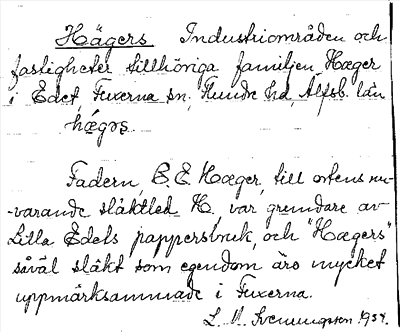 Hägers Industriområden och
fastigheter tillhöriga familjen Hæger
i Edet, Fuxerna sn, Flundre hd Älfsb. län
hǽgəs
Fadern, C. E. Hæger, till ortens nu-
-varande släktled H, var grundare av
Lilla Edets pappersbruk, och "Hægers"
såväl släkt som egendom äro mycket
uppmärksammade i Fuxerna.
L. M. Svenungsson 1934.